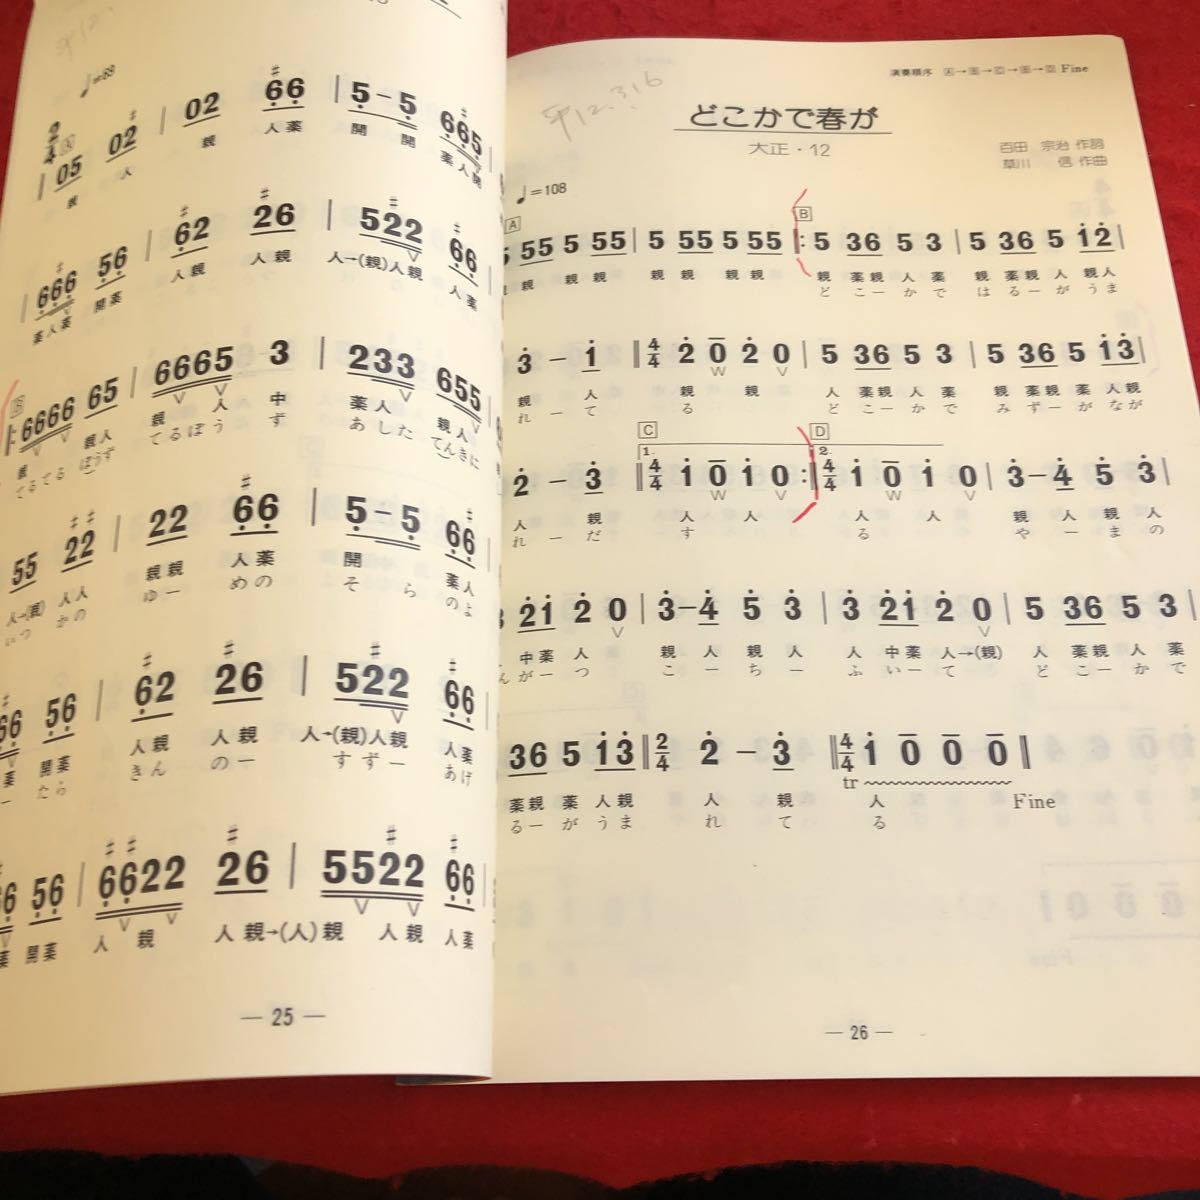 ♩=69
2/4
05 02 02 66 5-5 665
親 人 親 人薬 開 開 薬人開
666 56 62 26 522 66
薬人薬 開薬 人親 人親 人→(親)人親 人薬
6666 65 6665 3 233 655
親 親人 親 人 中 薬人 親人
てるてる ぼうず てるぼう ず あした てんきに
55 22 22 66 5-5 66
人→(親) 人人 親親 人薬 開 薬人
いつ かの ゆー めの そ ら のよ
66 56 62 26 522 66
薬 開薬 人親 人親 人→(親)人親 人薬
ー たら きん のー すずー あげ
66 56 6622 26 5522 66
薬 開薬 人 親 人 親→(人)親 人親 人薬
— 25 —
演奏順序 Fine
平12.3.16
どこかで春が
大正・12
百田 宗治 作詞
草川 信 作曲
♩=108
A B
5 55 5 55 | 5 55 5 55 ‖: 5 36 5 3 | 5 36 5 12 |
親 親 親 親親 親親 親 薬親 人 薬 親 薬親 人 親人
どこーかで はるーがうま
3 — 1 ‖ 4/4 2 0 2 0 | 5 36 5 3 | 5 36 5 13 |
親 人 親 親 人 薬親 人 薬 親 薬親 薬 人親
れーて る どこーかで みずーがなが
C D
1. 2.
2 — 3 ‖ 4/4 1 0 1 0 :‖ 4/4 1 0 1 0 | 3—4 5 3 |
人 親 人 人 人 人 親 人 親 人
れーだ す る やーまの
21 2 0 | 3—4 5 3 | 3 21 2 0 | 5 36 5 3 |
中薬 人 親 人 親 人 人 中薬 人→(親) 人 薬親 人 薬
んがーつ こーちー ふいーて どこーかで
36 5 13 ‖ 2/4 2 — 3 ‖ 4/4 1 0 0 0 ‖
tr
薬親 薬 人親 人 親 人 Fine
るーがうま れ て る
— 26 —